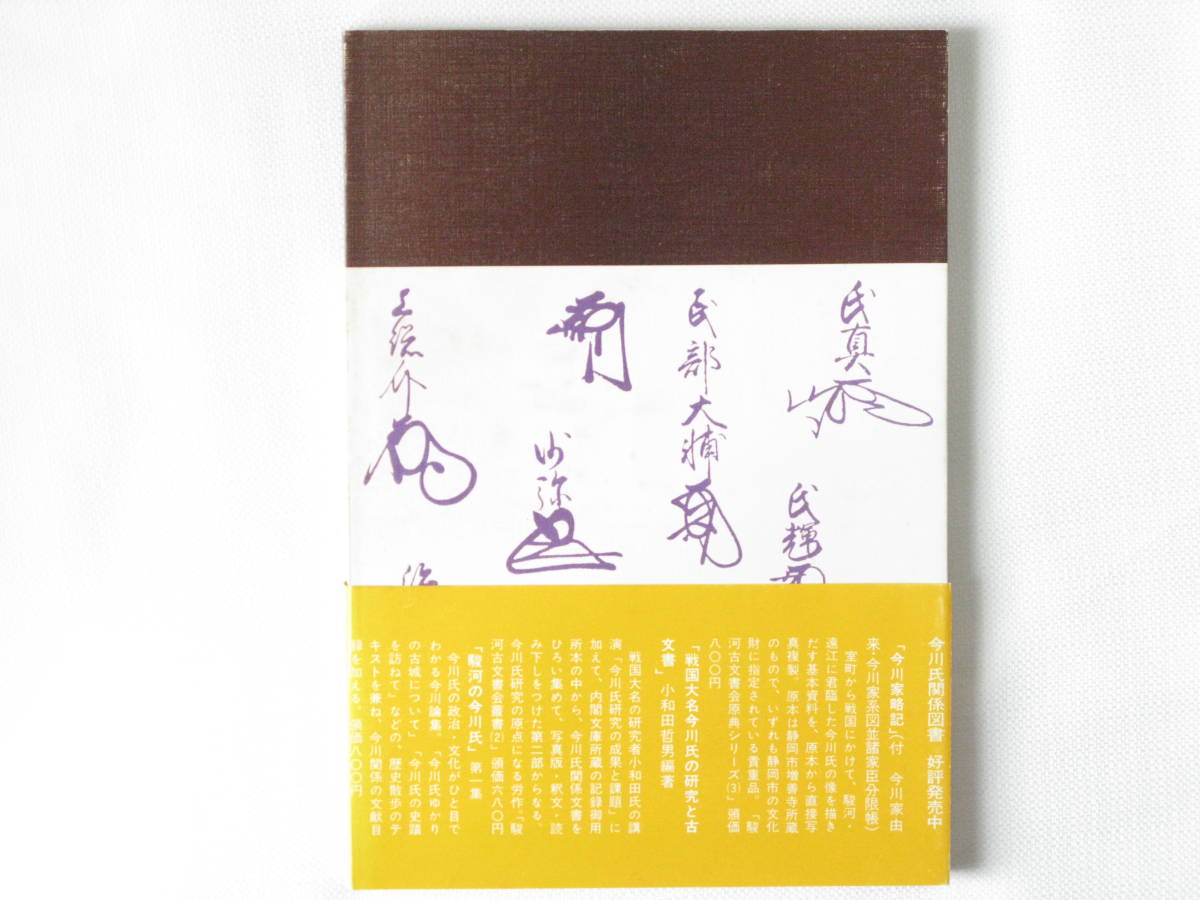 氏真
氏輝
民部大輔
沙弥
上総介
今川氏関係図書　好評発売中
「今川家略記」（付　今川家由
来・今川家系図並諸家臣分限帳）
室町から戦国にかけて、駿河・
遠江に君臨した今川氏の像を描き
だす基本資料を、原本から直接写
真複製。原本は静岡市増善寺所蔵
のもので、いずれも静岡市の文化
財に指定されている貴重品。「駿
河古文書会原典シリーズ⑶」頒価
八〇〇円
「戦国大名今川氏の研究と古
文書」　小和田哲男編著
戦国大名の研究者小和田氏の講
演「今川氏研究の成果と課題」に
加えて、内閣文庫所蔵の記録御用
所本の中から、今川氏関係文書を
ひろい集めて、写真版・釈文・読
み下しをつけた第二部からなる、
今川氏研究の原点になる労作「駿
河古文書会叢書⑵」頒価六八〇円
「駿河の今川氏」第一集
今川氏の政治・文化がひと目で
わかる今川論集。「今川氏ゆかり
の古城について」「今川氏の史蹟
を訪ねて」などの、歴史散歩のテ
キストを兼ね、今川関係の文献目
録を加える。頒価八〇〇円